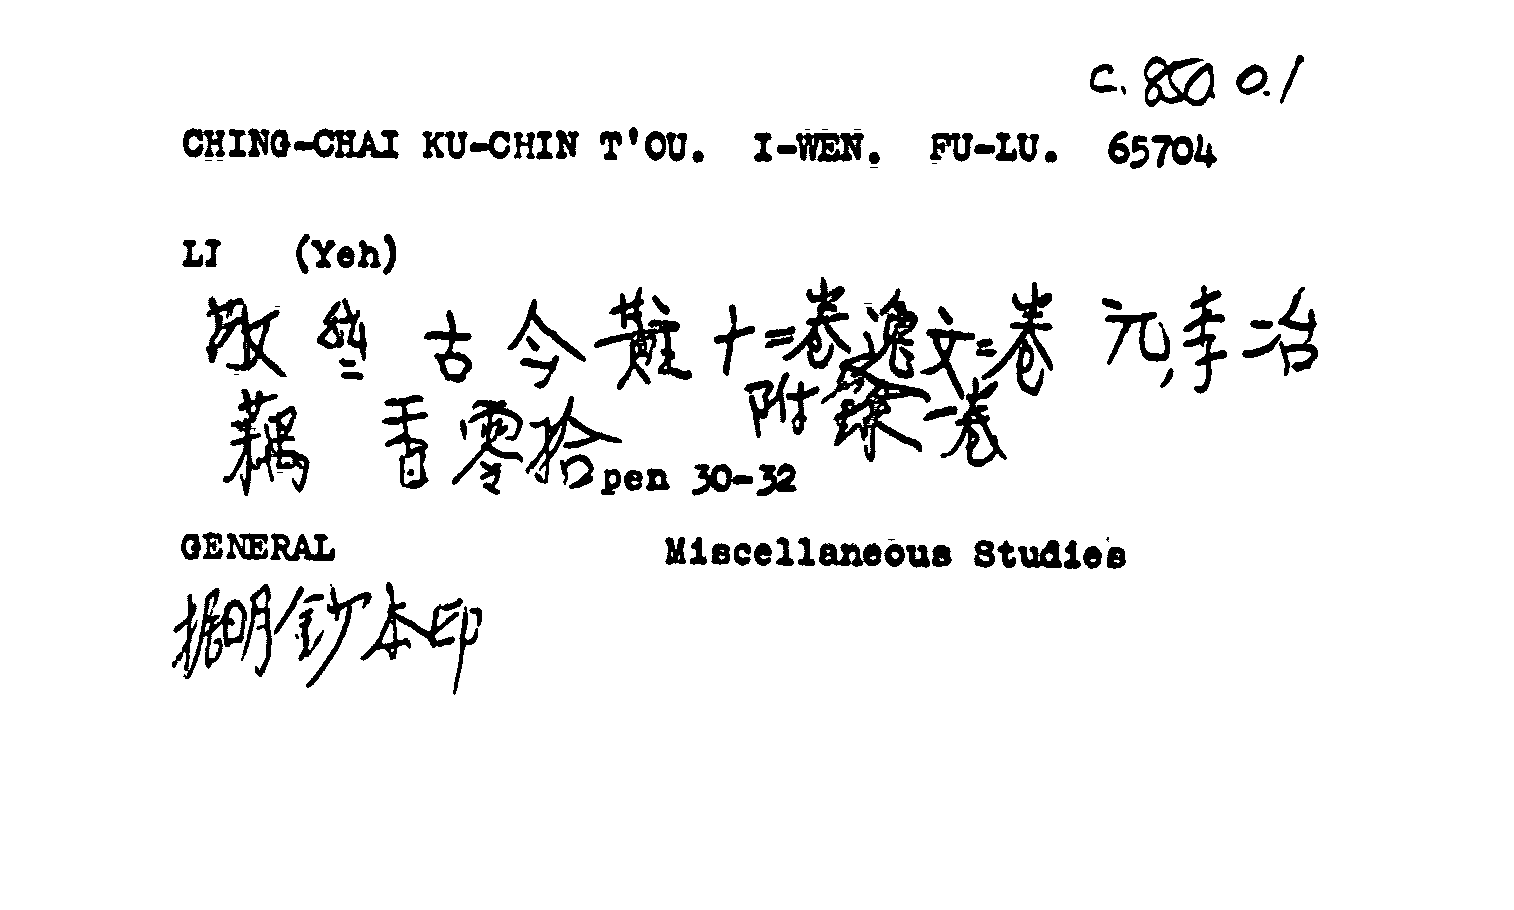 C. 850 0.1
CHING-CHAI KU-CHIN T'OU. I-WEN. FU-LU. 65704
LI (Yeh)
敬 古今黈十二卷逸文二卷 元,李冶
附錄一卷
藕香零拾 pen 30-32
GENERAL Miscellaneous Studies
据明鈔本印